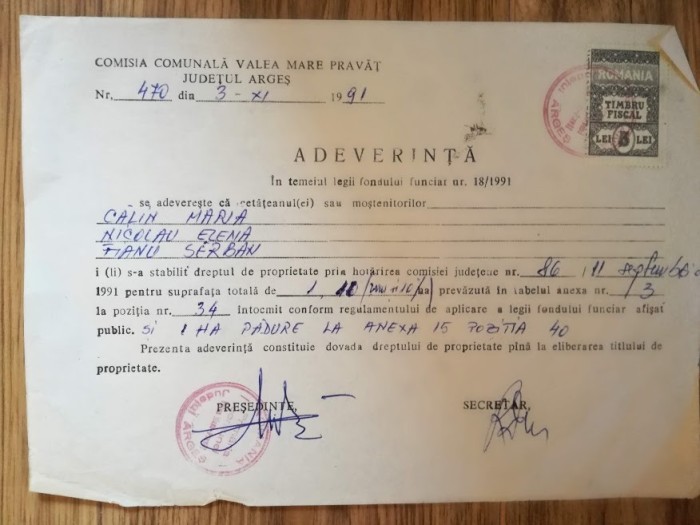 COMISIA COMUNALĂ VALEA MARE PRAVĂȚ
JUDEȚUL ARGEȘ
Nr. 470 din 3 - XI 1991
ROMANIA
TIMBRU
FISCAL
LEI 3 LEI
Județul ARGEȘ
ADEVERINȚĂ
În temeiul legii fondului funciar nr. 18/1991
se adeverește că cetățeanul(ei) sau moștenitorilor
CALIN MARIA
NICOLAU ELENA
FIANU SERBAN
i (li) s-a stabilit dreptul de proprietate prin hotărîrea comisiei județene nr. 86, 11 septembrie
1991 pentru suprafața totală de prevăzută în tabelul anexa nr. 3
la poziția nr. 34 Întocmit conform regulamentului de aplicare a legii fondului funciar afișat
public. SI 1 HA PADURE LA ANEXA 15 POZITIA 40
Prezenta adeverință constituie dovada dreptului de proprietate pînă la eliberarea titlului de
proprietate.
PREȘEDINTE, SECRETAR,
Județul ARGEȘ